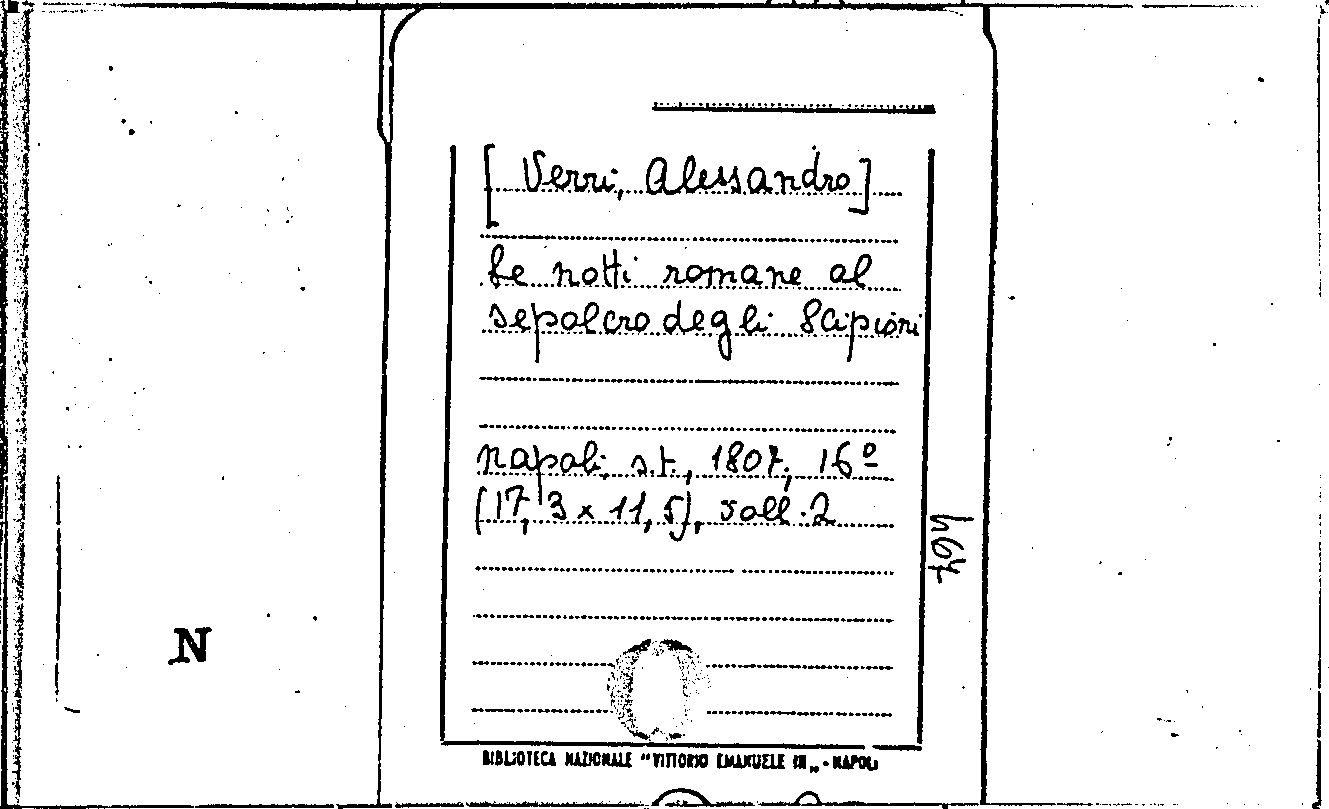 [Verri, Alessandro]
Le notti romane al
sepolcro degli Scipioni
Napoli, s.t., 1807, 16º
(17,3 x 11,5), voll. 2
N
BIBLIOTECA NAZIONALE "VITTORIO EMANUELE III„ - NAPOLI